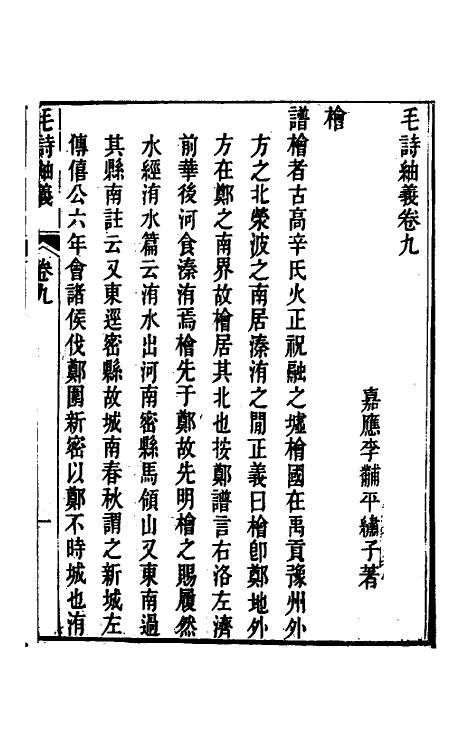 毛詩紬義卷九
嘉應李黼平繡子著
檜
譜檜者古高辛氏火正祝融之墟檜國在禹貢豫州外
方之北滎波之南居溱洧之閒正義曰檜卽鄭地外
方在鄭之南界故檜居其北也按鄭譜言右洛左濟
前華後河食溱洧焉檜先于鄭故先明檜之賜履然
水經洧水篇云洧水出河南密縣馬領山又東南過
其縣南註云又東逕密縣故城南春秋謂之新城左
傳僖公六年會諸侯伐鄭圍新密以鄭不時城也洧
毛詩紬義
卷九
一